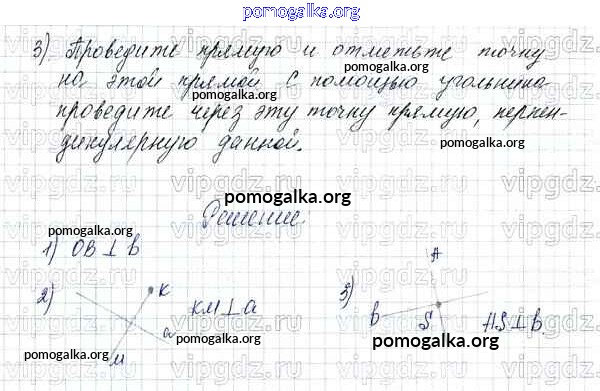 pomogalka.org
3) Проведите прямую и отметьте точку
на этой прямой. С помощью угольника
проведите через эту точку прямую, перпен-
дикулярную данной.
pomogalka.org
pomogalka.org
pomogalka.org
pomogalka.org
vipgdz.ru
Решение:
pomogalka.org
pomogalka.org
1) OB ⊥ b
2) K a M KM ⊥ a
3) A b S AS ⊥ b.
pomogalka.org
pomogalka.org
pomogalka.org
pomogalka.org